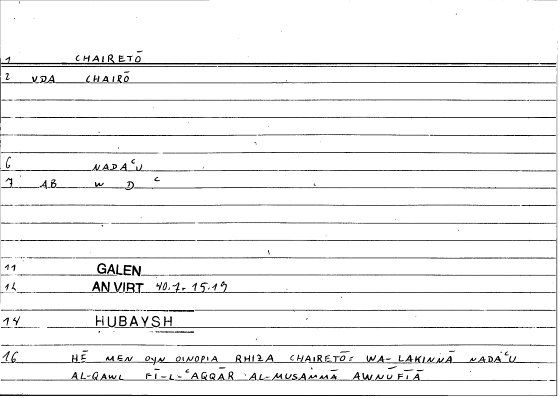 1 CHAIRETŌ
2 VDA CHAIRŌ
6 NADAᶜU
7 AB W D ᶜ
11 GALEN
12 AN VIRT 40.7-15.19
14 HUBAYSH
16 HĒ MEN OYN OINOPIA RHIZA CHAIRETŌ: WA-LAKINNĀ NADAᶜU
AL-QAWL FĪ-L-ᶜAQQĀR AL-MUSAMMĀ AWNŪFIĀ